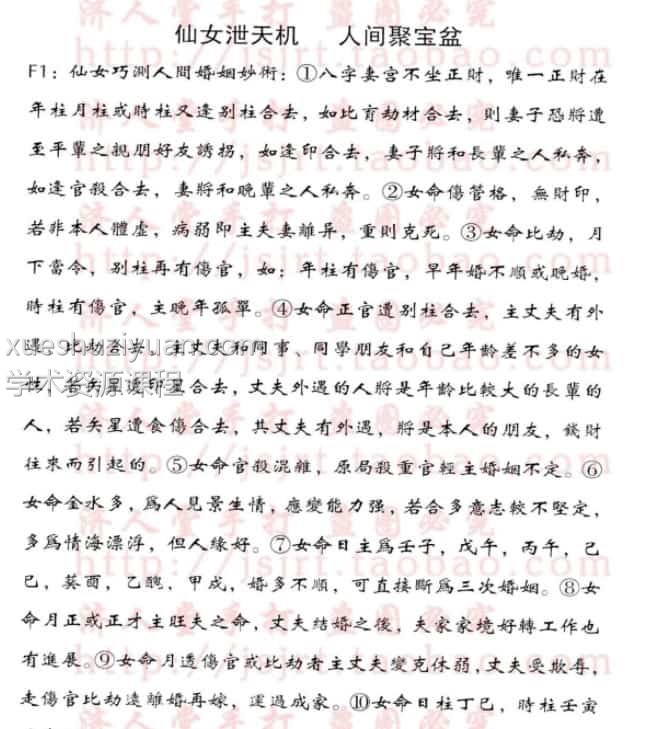 仙女泄天机 人间聚宝盆
F1：仙女巧測人間婚姻妙術：①八字妻宮不坐正財，唯一正財在
年柱月柱或時柱又逢别柱合去，如比肓劫材合去，則妻子恐將遭
至平輩之親朋好友誘拐，如逢印合去，妻子將和長輩之人私奔，
如逢官殺合去，妻將和晚輩之人私奔。②女命傷管格，無財印，
若非本人體虛，病弱即主夫妻離异，重則克死。③女命比劫，月
下當令，别柱再有傷官，如：年柱有傷官，早年婚不順或晚婚，
時柱有傷官，主晚年孤單。④女命正官遭别柱合去，主丈夫有外
遇。比劫合去，主丈夫和同事、同學朋友和自己年齡差不多的女
性，若矢星遭印星合去，丈夫外遇的人將是年齡比較大的長輩的
人，若矢星遭食傷合去，其丈夫有外遇，將是本人的朋友，錢財
往來而引起的。⑤女命官殺混雜，原局殺重官輕主婚姻不定。⑥
女命金水多，爲人見景生情，應變能力强，若合多意志較不堅定，
多爲情海漂浮，但人緣好。⑦女命日主爲壬子，戊午，丙午，己
巳，葵酉，乙醜，甲戍，婚多不順，可直接斷爲三次婚姻。⑧女
命月正或正才主旺夫之命，丈夫結婚之後，夫家家境好轉工作也
有進展。⑨女命月透傷官或比劫者主丈夫變克休弱，丈夫受欺辱，
走傷官比劫遠離婚再嫁，運過成家。⑩女命日柱丁巳，時柱壬寅
济人堂手打 盗图必究
http://jsjrt.taobao.com
xueshuziyuan.com
学术资源课程